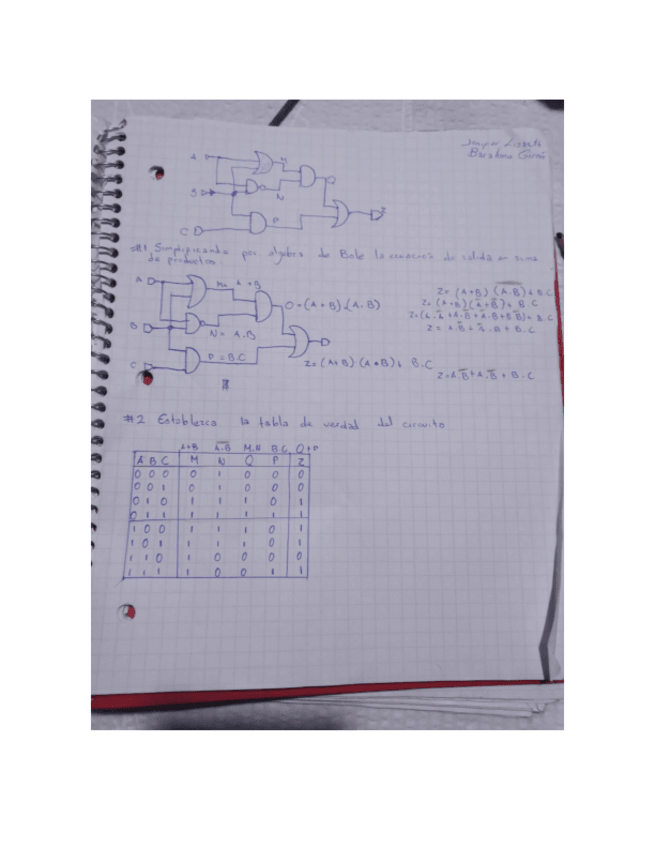 A
M
B
N
C
P
Z
#1 Simplificando por algebra de Bole la ecuación de salida en suma
de productos
A
M= A+B
O=(A+B).(A.B)
B
N= A.B
C
P=B.C
Z=(A+B)(A.B)+ B.C
Z= (A+B) (\overline{A.B})+B.C
Z= (A+B)(Ā+B̄)+ B.C
Z=(A.Ā+A.B̄+Ā.B+B.B̄)+ B.C
Z= A.B̄+Ā.B+B.C
#2 Establezca la tabla de verdad del circuito
A+B \overline{A.B} M.N B.C Q+P
A B C M N Q P Z
0 0 0 0 1 0 0 0
0 0 1 0 1 0 0 0
0 1 0 1 1 1 0 1
0 1 1 1 1 1 1 1
1 0 0 1 1 1 0 1
1 0 1 1 1 1 0 1
1 1 0 1 0 0 0 0
1 1 1 1 0 0 1 1